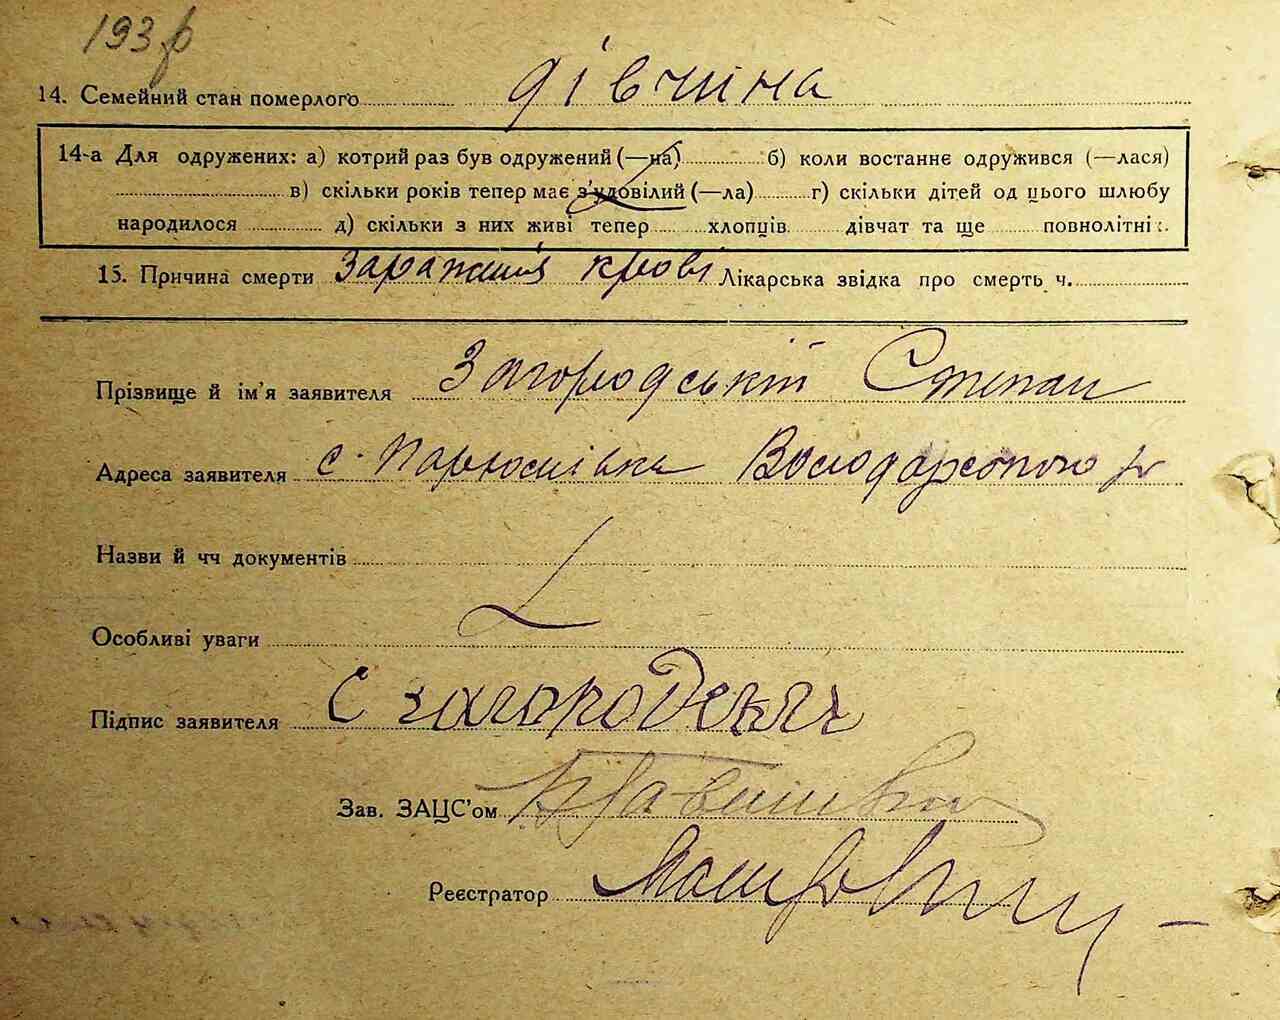 193
14. Семейний стан померлого дівчина
14-а Для одружених: а) котрий раз був одружений (—на) б) коли востаннє одружився (—лася)
в) скільки років тепер має з'удовілий (—ла) г) скільки дітей од цього шлюбу
народилося д) скільки з них живі тепер хлопців дівчат та ще повнолітні
15. Причина смерти Зараження крові Лікарська звідка про смерть ч.
Прізвище й ім'я заявителя Загородській Степан
Адреса заявителя с. Володарського р
Назви й чч документів
Особливі уваги
Підпис заявителя С загородскяч
Зав. ЗАЦС'ом
Реєстратор